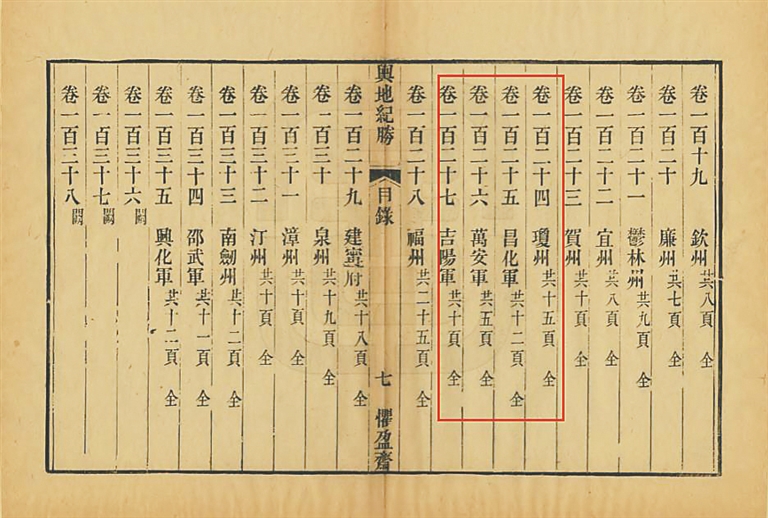 卷一百十九 欽州 共八頁 全
卷一百二十 廉州 共七頁 全
卷一百二十一 鬱林州 共九頁 全
卷一百二十二 宜州 共八頁 全
卷一百二十三 賀州 共十頁 全
卷一百二十四 瓊州 共十五頁 全
卷一百二十五 昌化軍 共十二頁 全
卷一百二十六 萬安軍 共五頁 全
卷一百二十七 吉陽軍 共十頁 全
卷一百二十八 福州 共二十五頁 全
輿地紀勝 目錄 七 懼盈齋
卷一百二十九 建寧府 共十八頁 全
卷一百三十 泉州 共十九頁 全
卷一百三十一 漳州 共十頁 全
卷一百三十二 汀州 共十頁 全
卷一百三十三 南劒州 共十二頁 全
卷一百三十四 邵武軍 共十一頁 全
卷一百三十五 興化軍 共十二頁 全
卷一百三十六 闕
卷一百三十七 闕
卷一百三十八 闕